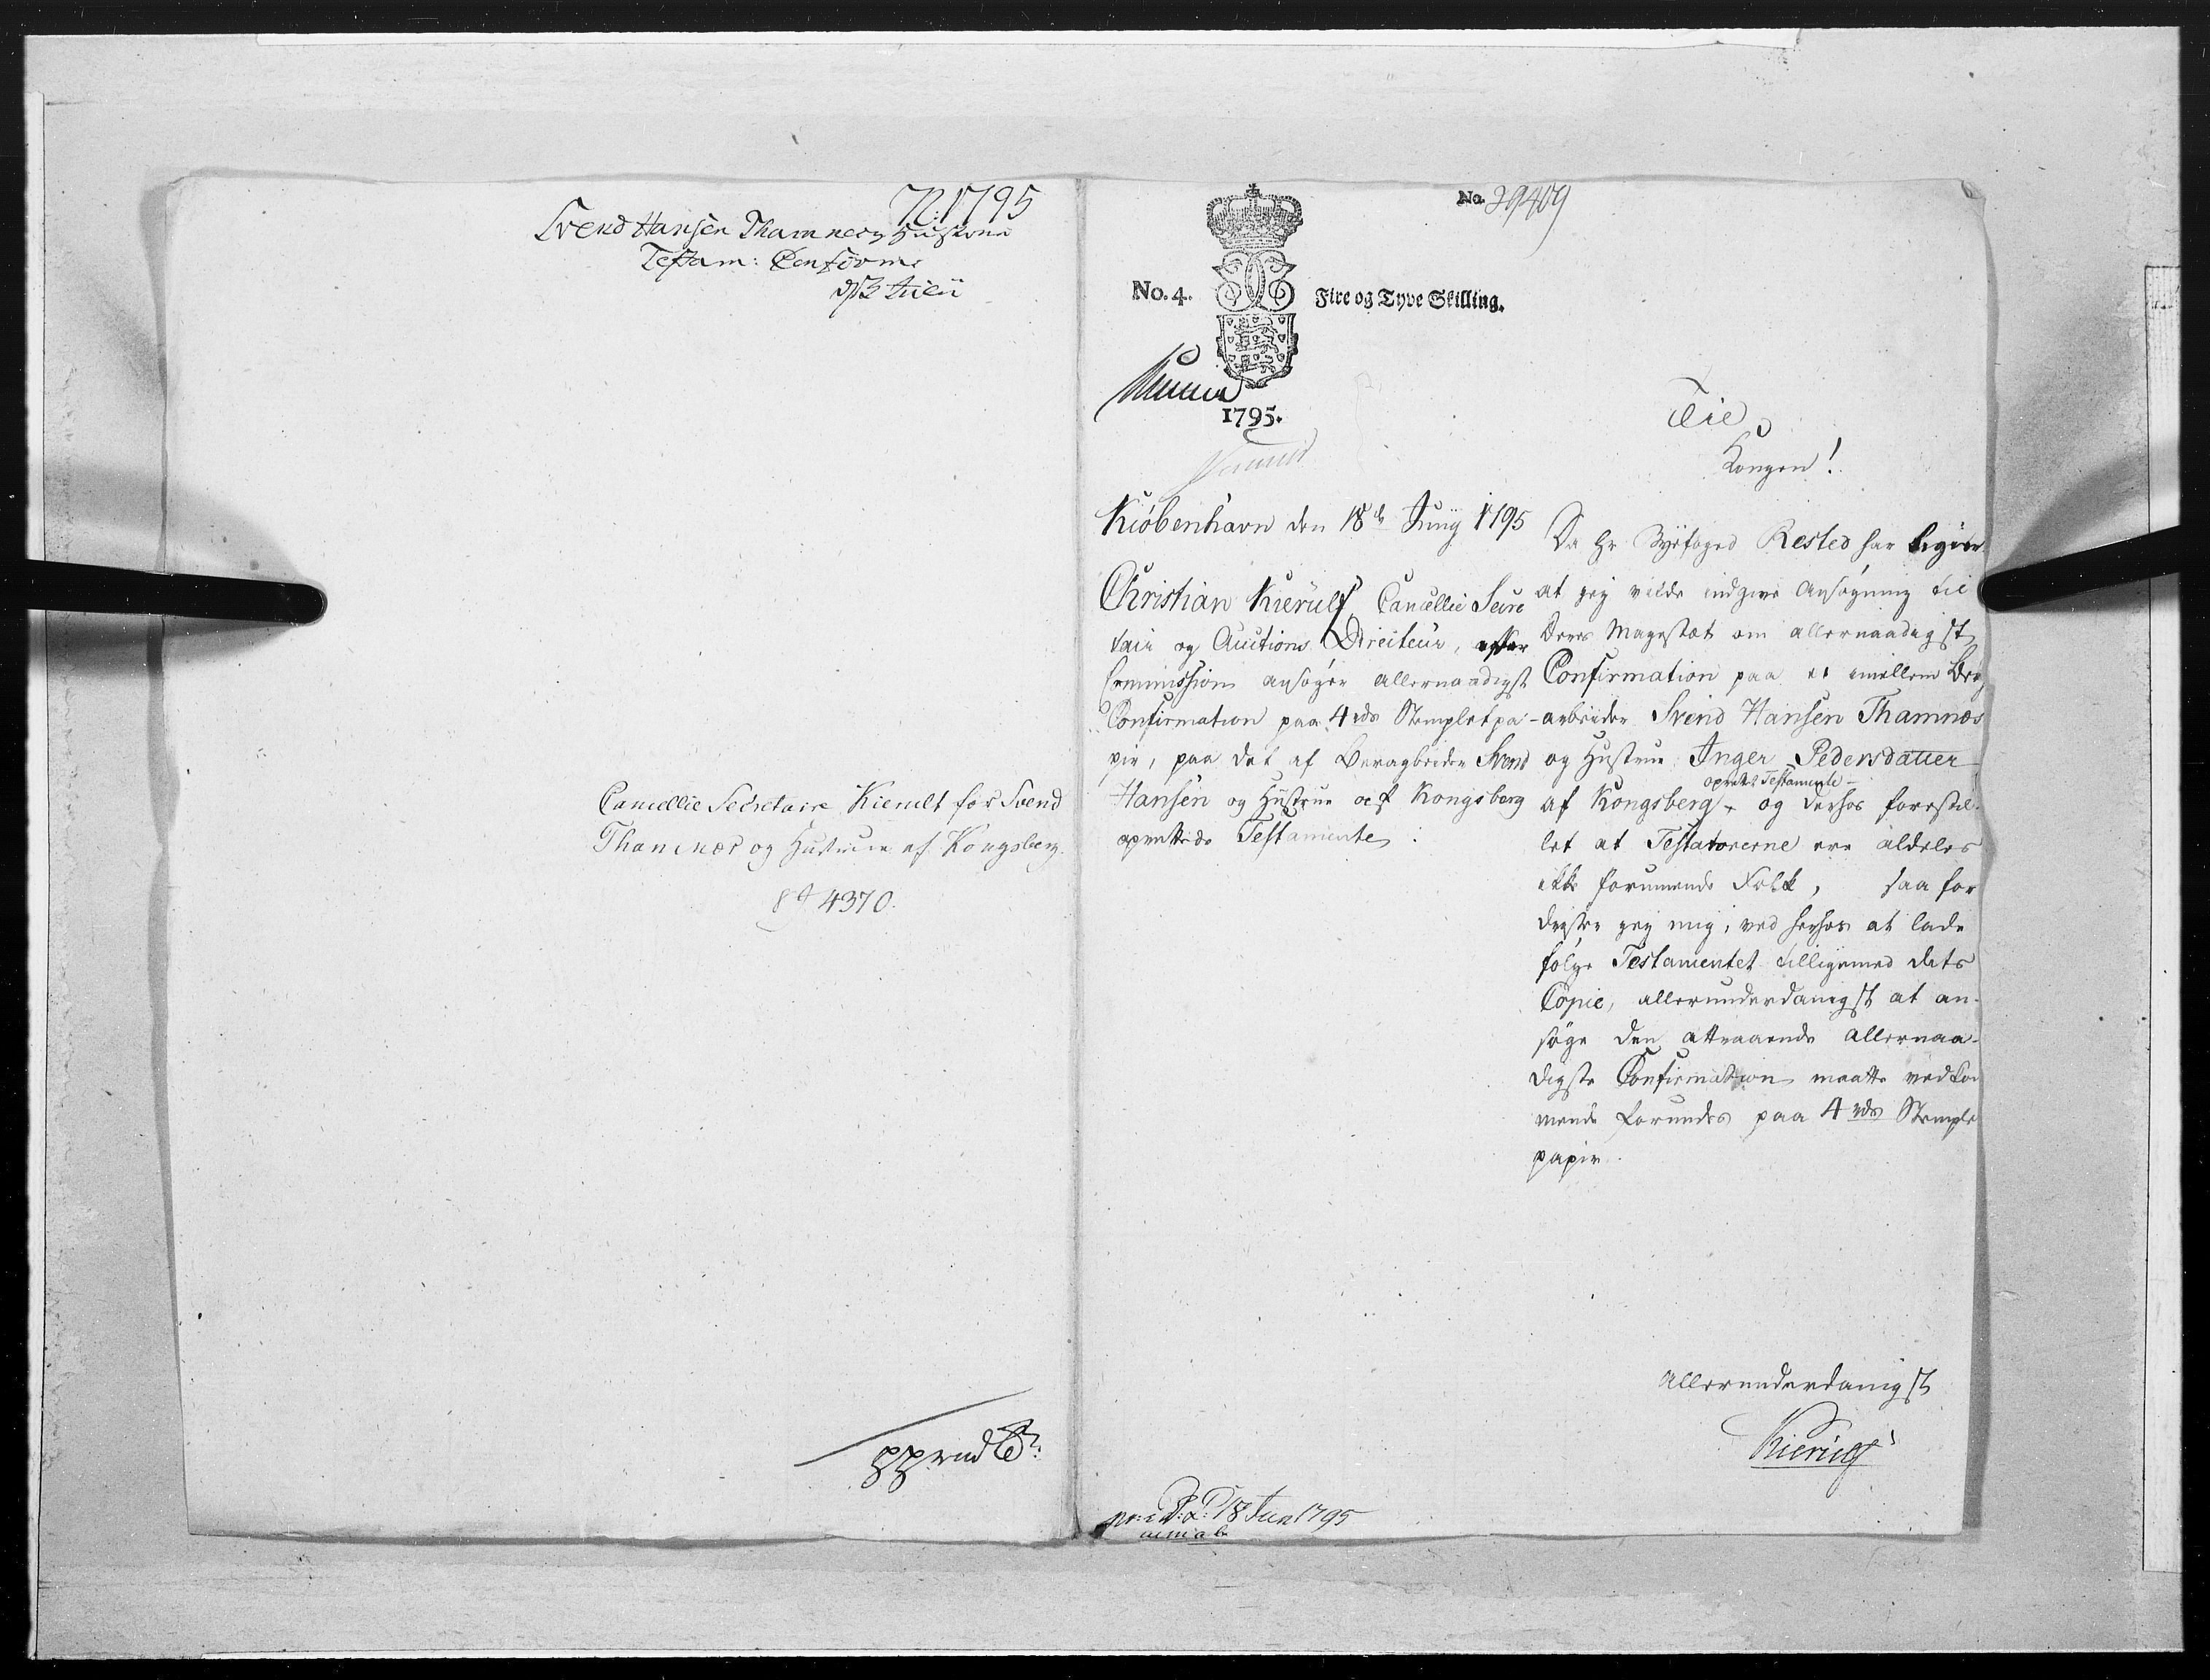 1795
Svend Hansen Thamnes og Hustrues
Testam: Confirm:
d 3 Julii
Cancellie Secretaire Kierulf for Svend
Thamnes og Hustrue af Kongsberg.
4370.
No. 39409
No. 4. Fire og Tyve Skilling.
1795.
Til
Kongen!
Kiöbenhavn den 18de Junij 1795
Christian Kierulf Cancellie Secre
tair og Auctions Directeur, efter
Commission ansøger allernaadigst
Confirmation paa 4 rds Stemplet pa-
pir, paa det af Bergarbeider Svend
Hansen og Hustrue af Kongsberg
oprettede Testamente:
Da Hr Byefoged Rested har begiær
at jeg vilde indgive Ansøgning til
Deres Majestæt om allernaadigst
Confirmation paa et imellem Berg
arbeider Svend Hansen Thamnes
og Hustrue Inger Pedersdatter
oprettet Testamente
af Kongsberg, og derhos forestil-
let at Testatorerne ere aldeles
ikke formuende Folk, saa for
drister jeg mig, ved herhos at lade
følge Testamentet tilligemed dets
Copie, allerunderdanigst at an-
søge den attraaende allernaa-
digste Confirmation maatte vedkom
mende forundes paa 4 rds Stemplet
papir.
Allerunderdanigst
Kierulf
18 Jun 1795